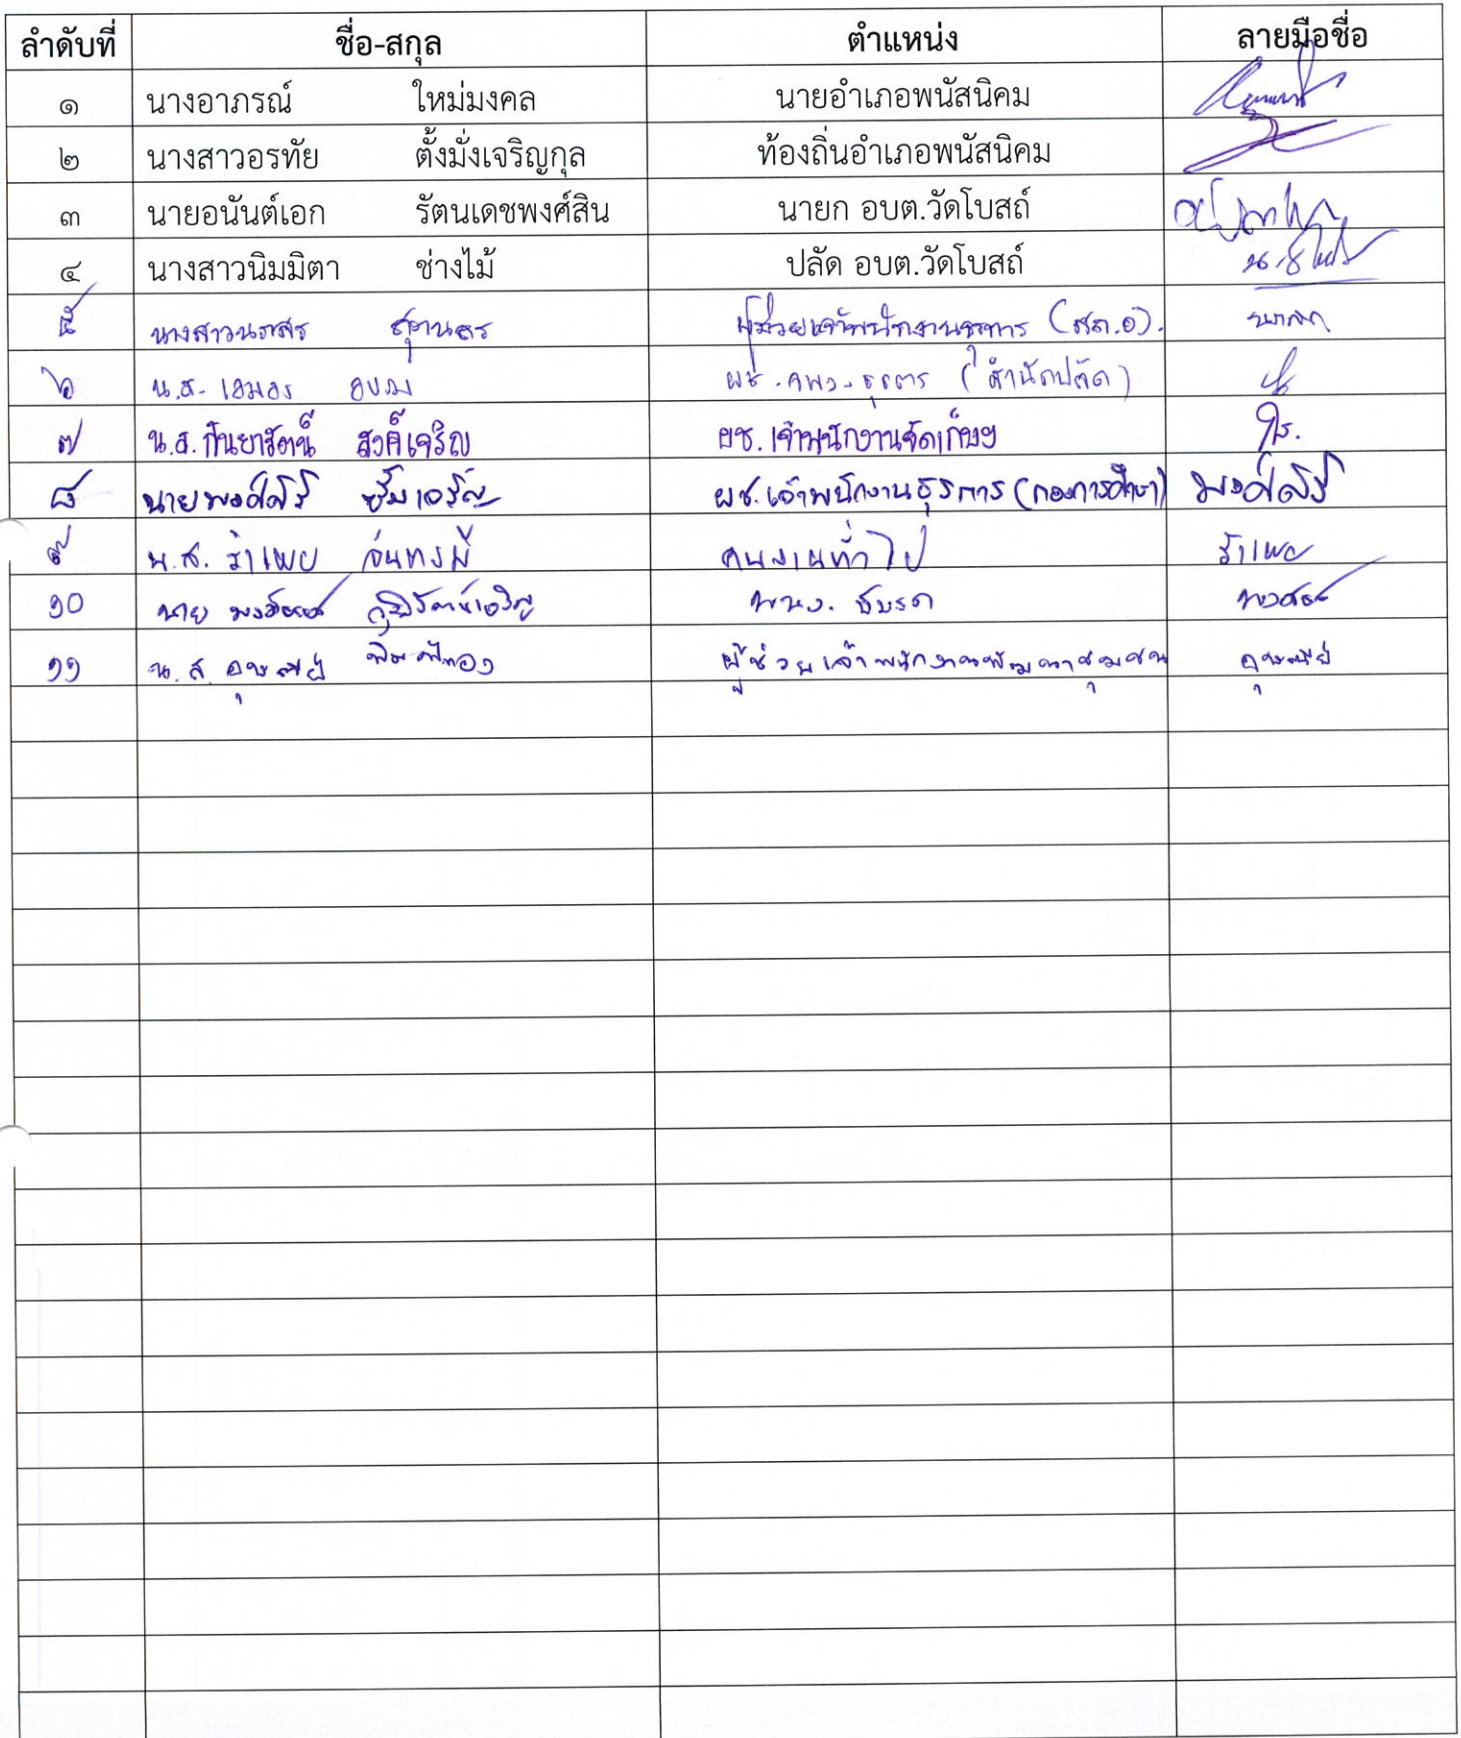 ลำดับที่ ชื่อ-สกุล ตำแหน่ง ลายมือชื่อ
๑ นางอาภรณ์ ใหม่มงคล นายอำเภอพนัสนิคม
๒ นางสาวอรทัย ตั้งมั่งเจริญกุล ท้องถิ่นอำเภอพนัสนิคม
๓ นายอนันต์เอก รัตนเดชพงศ์สิน นายก อบต.วัดโบสถ์
๔ นางสาวนิมมิตา ช่างไม้ ปลัด อบต.วัดโบสถ์
๕ ผู้ช่วยเจ้าพนักงานธุรการ (สถ.อ).
๖ น.ส. เอมอร ผช. จพง. ธุรการ (สำนักปลัด)
๗ น.ส. กันยารัตน์ สงค์เจริญ ผช. เจ้าพนักงานจัดเก็บฯ
๘ นายพงศ์สิริ ผช. เจ้าพนักงานธุรการ (กองการศึกษา) พงศ์สิริ
๙ น.ส. รำเพย จันทรมี คนงานทั่วไป รำเพย
๑๐ นาย พนง. ขับรถ
๑๑ น.ส. อุษณีย์ พิมพ์ทอง ผู้ช่วยเจ้าพนักงานพัฒนาชุมชน อุษณีย์